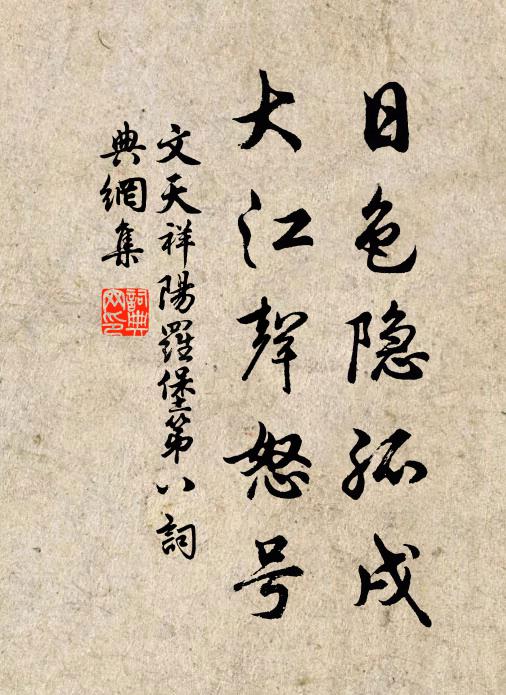 日色隐孤戍
大江聲怒号
文天祥陽羅堡第八詞
典網集
詞典網印